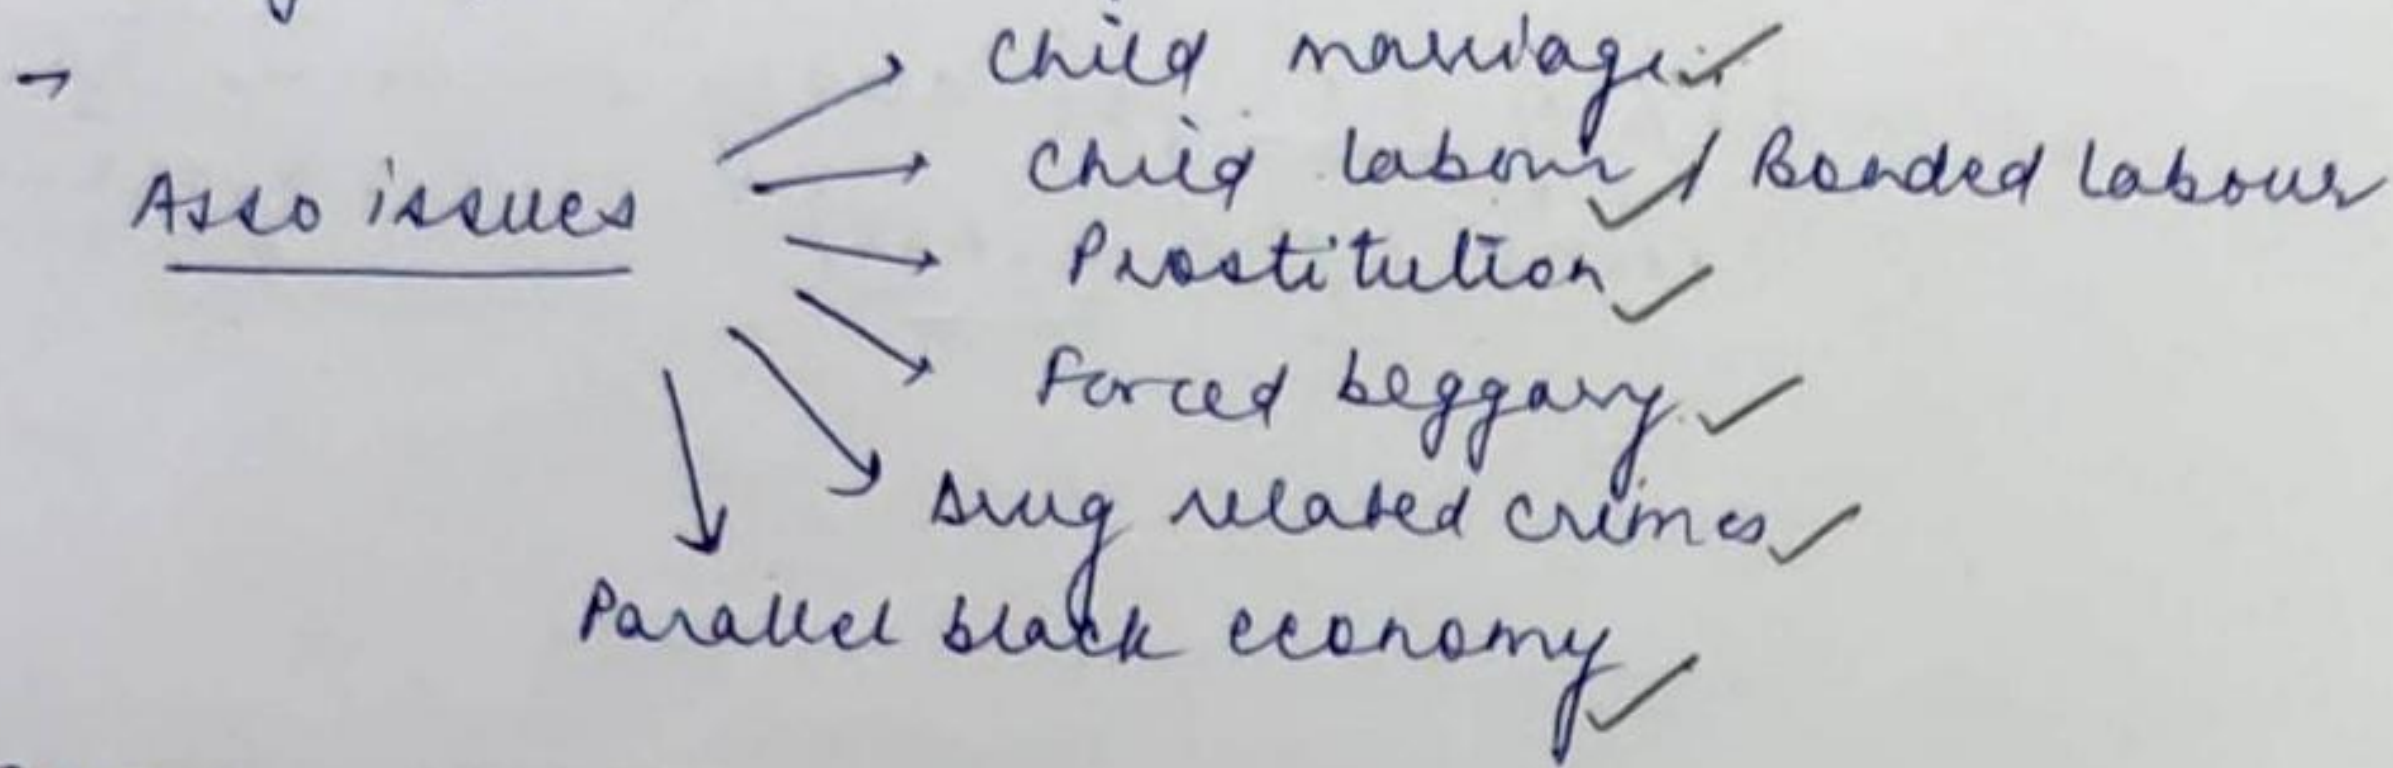 Child marriage
Child labour / Bonded labour
Asso issues
Prostitution
Forced beggary
Drug related crimes
Parallel black economy